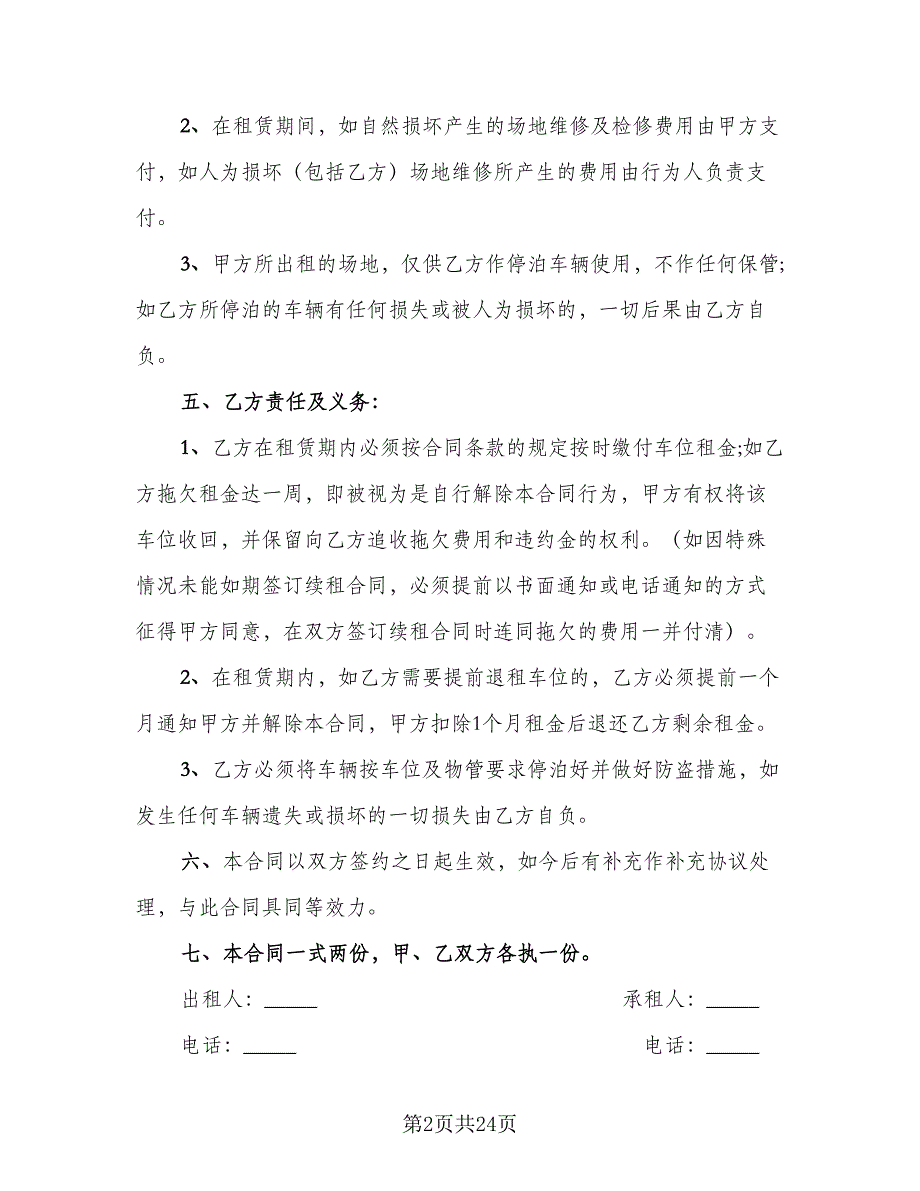 2、在租赁期间，如自然损坏产生的场地维修及检修费用由甲方支
付，如人为损坏（包括乙方）场地维修所产生的费用由行为人负责支
付。
3、甲方所出租的场地，仅供乙方作停泊车辆使用，不作任何保管;
如乙方所停泊的车辆有任何损失或被人为损坏的，一切后果由乙方自
负。
五、乙方责任及义务：
1、乙方在租赁期内必须按合同条款的规定按时缴付车位租金;如乙
方拖欠租金达一周，即被视为是自行解除本合同行为，甲方有权将该
车位收回，并保留向乙方追收拖欠费用和违约金的权利。（如因特殊
情况未能如期签订续租合同，必须提前以书面通知或电话通知的方式
征得甲方同意，在双方签订续租合同时连同拖欠的费用一并付清）。
2、在租赁期内，如乙方需要提前退租车位的，乙方必须提前一个
月通知甲方并解除本合同，甲方扣除1个月租金后退还乙方剩余租金。
3、乙方必须将车辆按车位及物管要求停泊好并做好防盗措施，如
发生任何车辆遗失或损坏的一切损失由乙方自负。
六、本合同以双方签约之日起生效，如今后有补充作补充协议处
理，与此合同具同等效力。
七、本合同一式两份，甲、乙双方各执一份。
出租人：_____ 承租人：_____
电话：_____ 电话：_____
第2页共24页